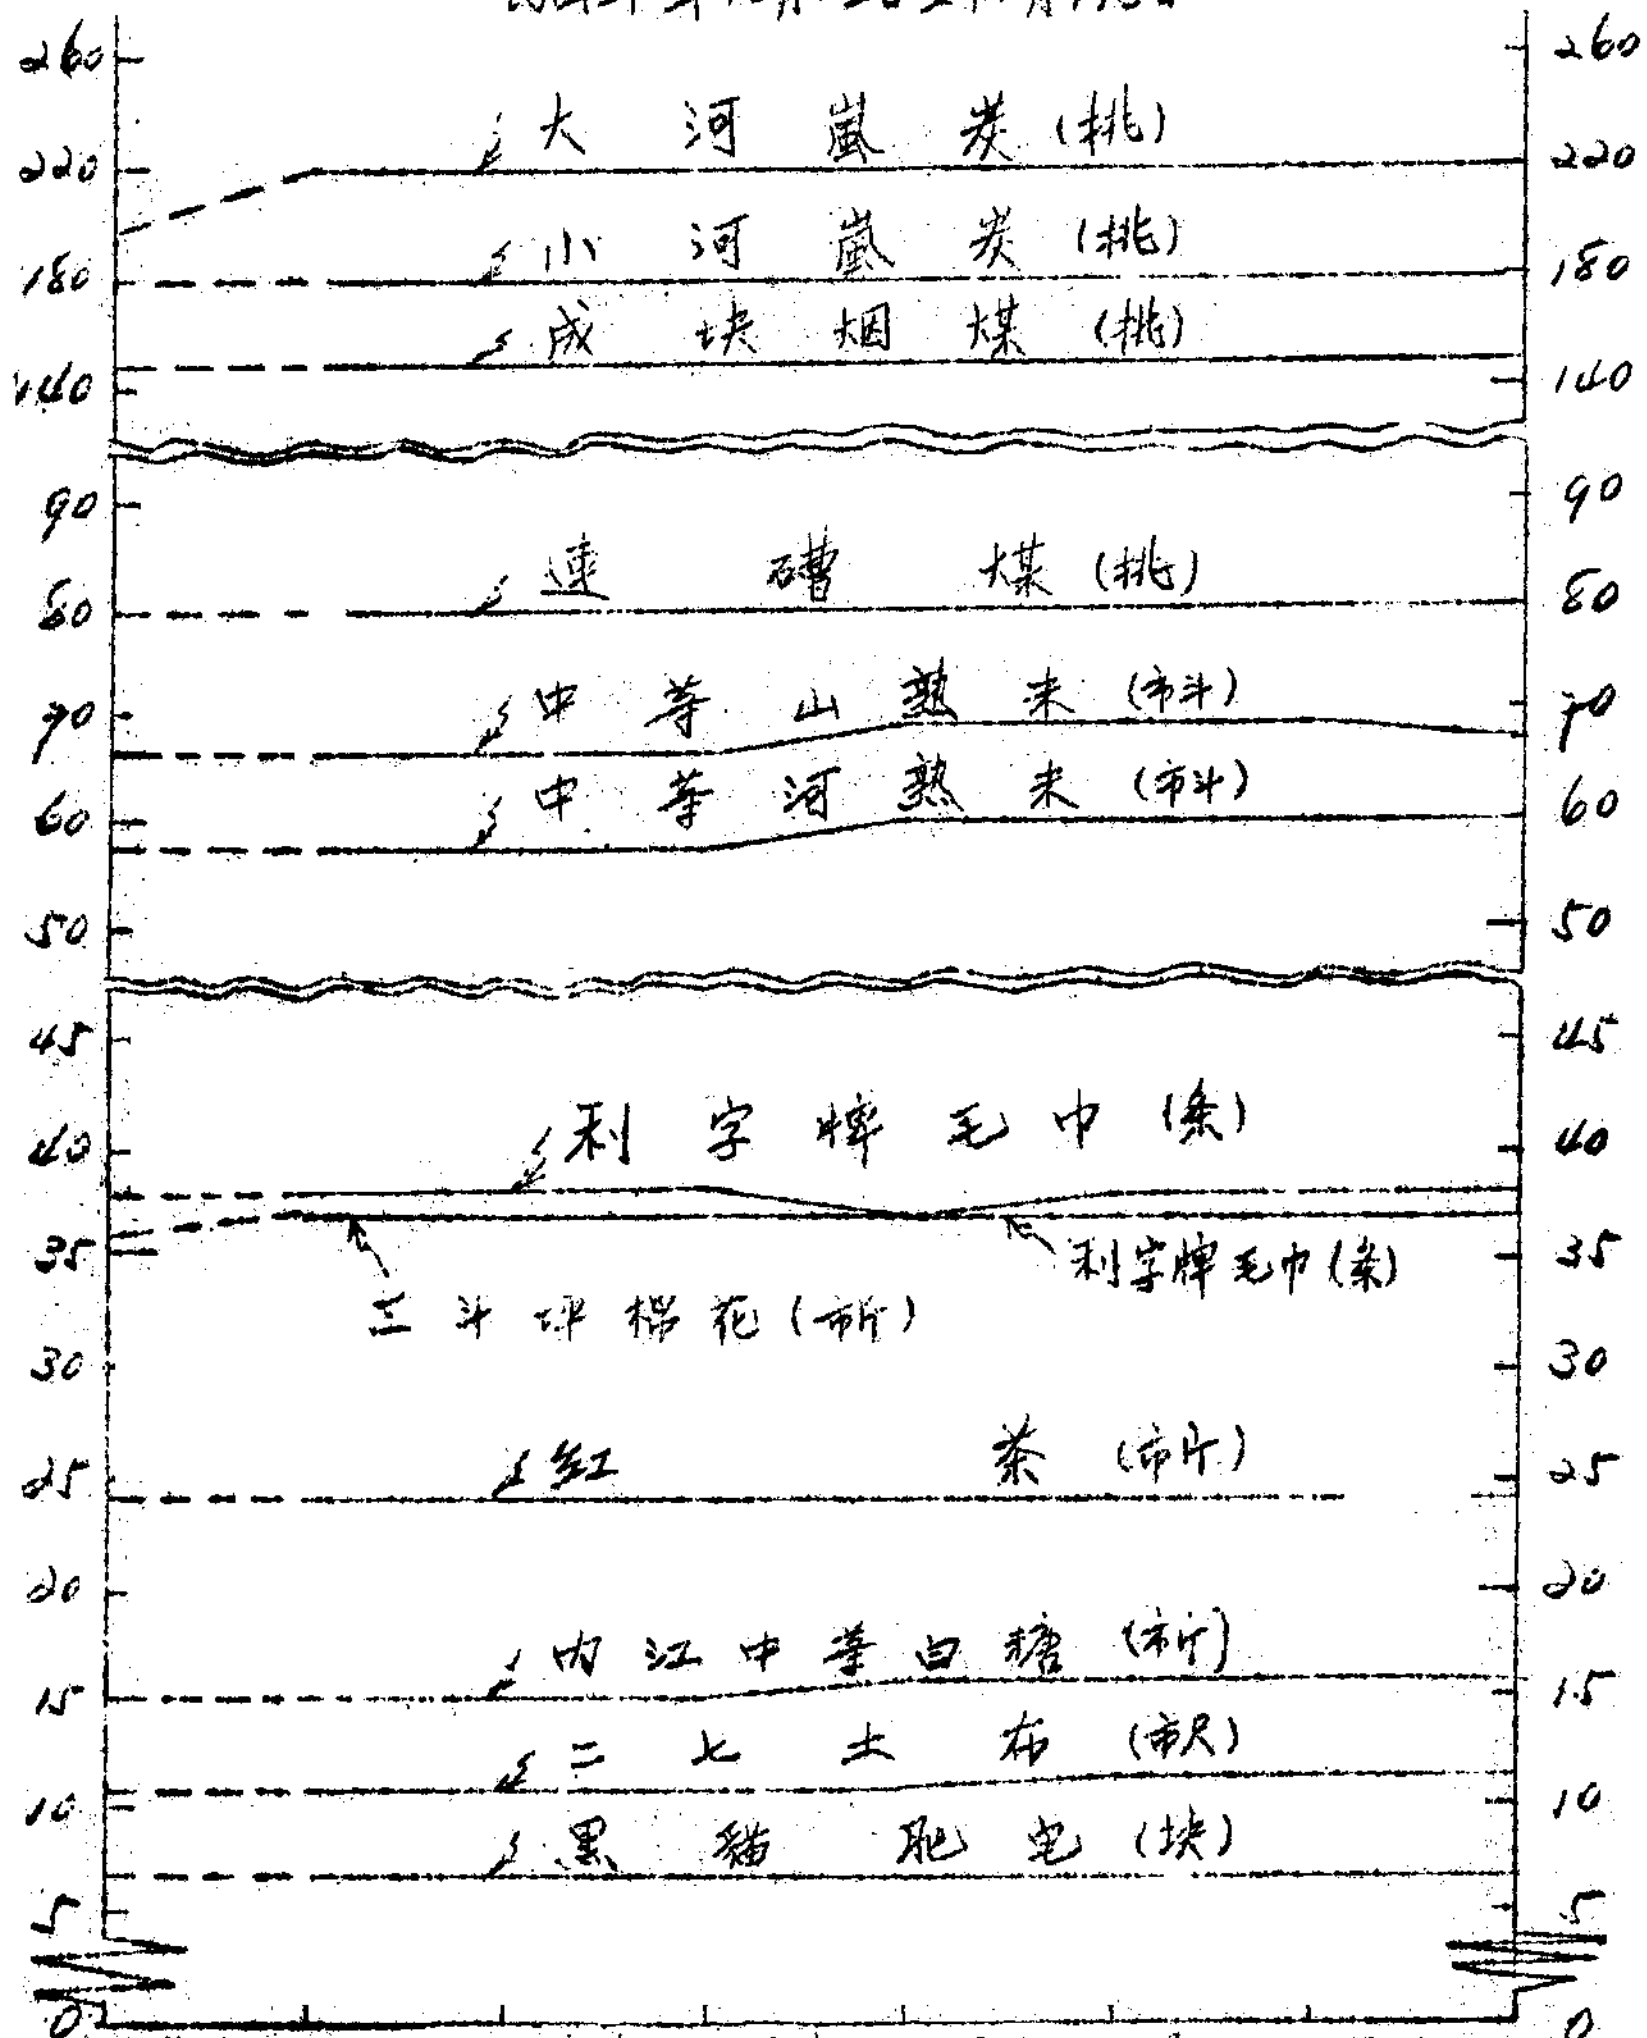 260 260
大河嵐炭(挑)
220 220
小河嵐炭(挑)
180 180
成块烟煤(挑)
140 140
90 90
連磳煤(挑)
80 80
中等山熟米(市斗)
70 70
中等河熟米(市斗)
60 60
50 50
45 45
利字牌毛巾(条)
40 40
35 35
利字牌毛巾(条)
三斗坪棉花(市斤)
30 30
紅茶(市斤)
25 25
20 20
内江中等白糖(市斤)
15 15
二七土布(市尺)
10 10
黑貓肥皂(块)
5 5
0 0